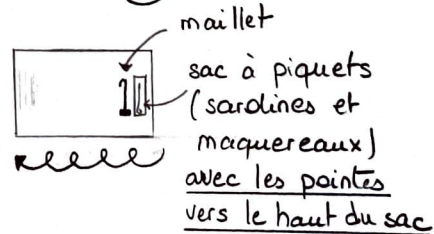 maillet
sac à piquets
(sardines et
maquereaux)
avec les pointes
vers le haut du sac